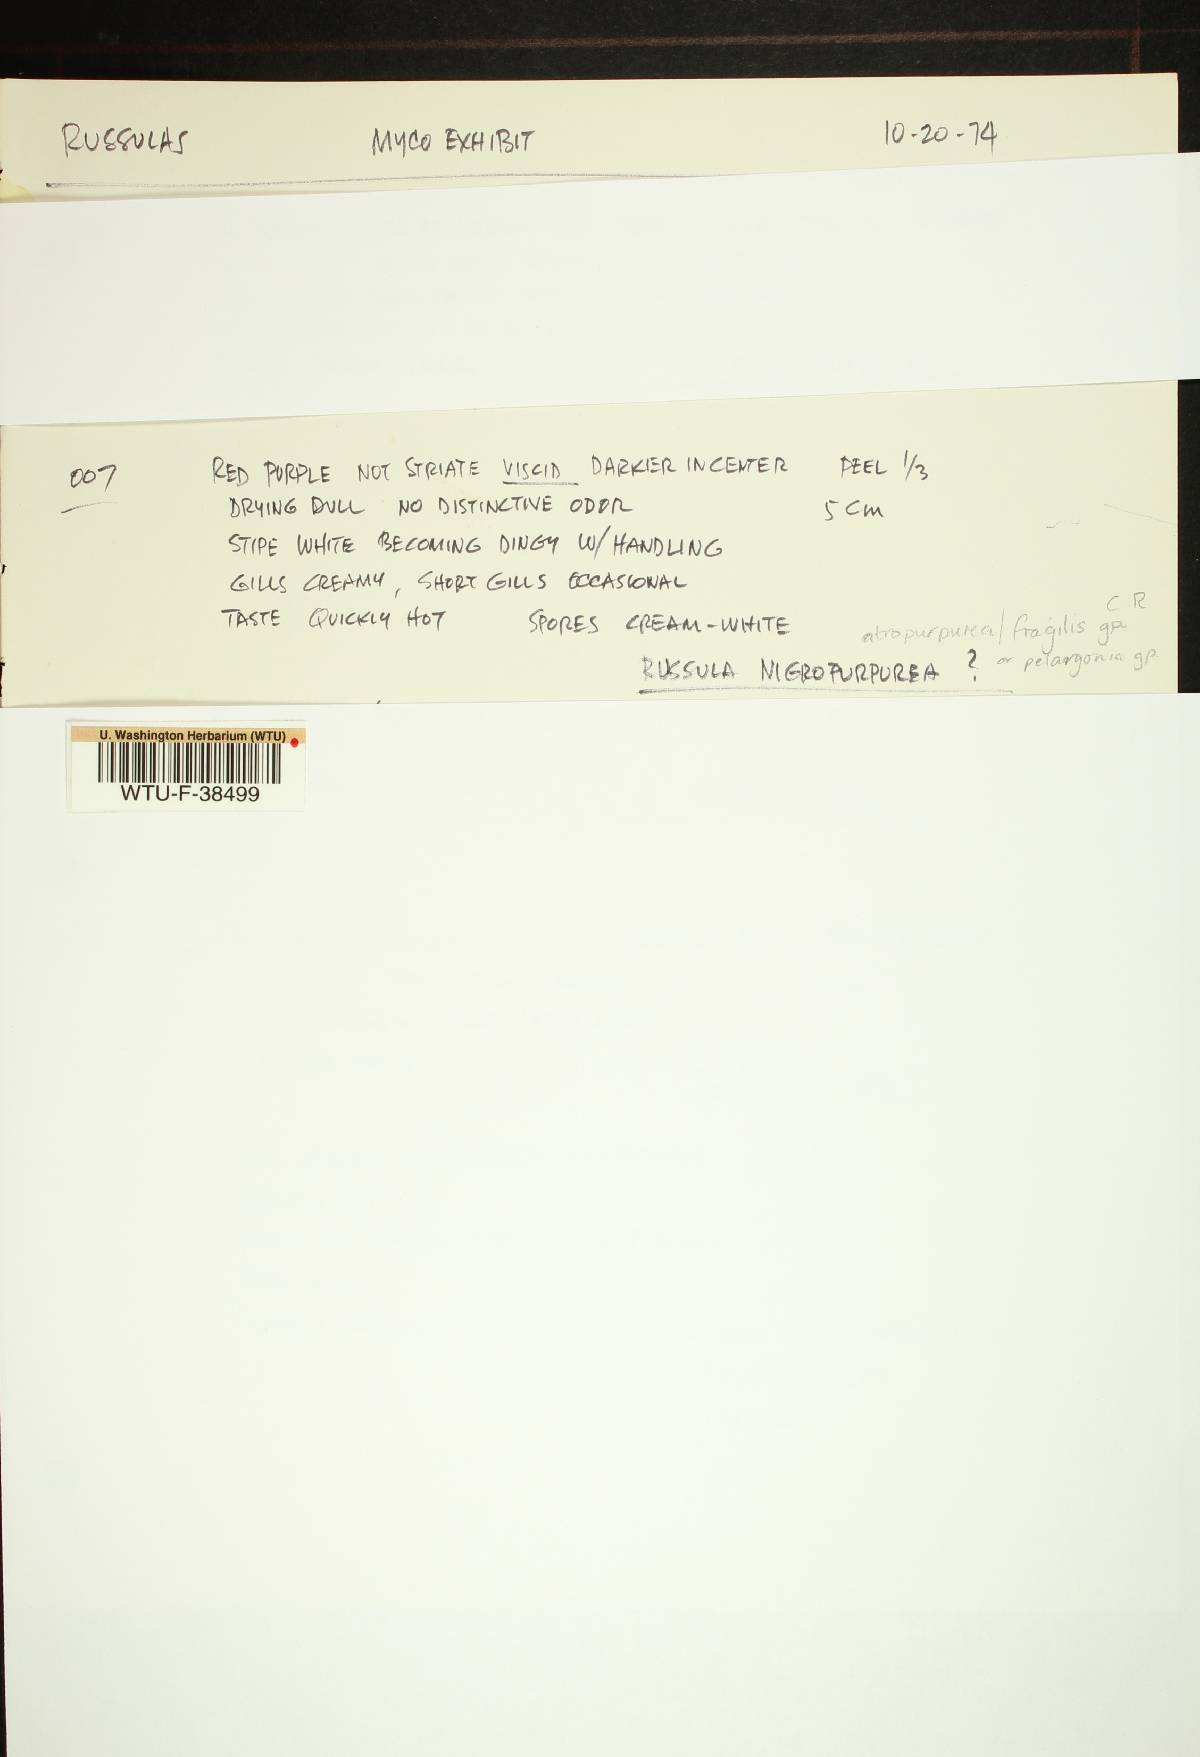 RUSSULAS MYCO EXHIBIT 10-20-74
007 RED PURPLE NOT STRIATE VISCID DARKER IN CENTER PEEL 1/3
DRYING DULL NO DISTINCTIVE ODOR 5 Cm
STIPE WHITE BECOMING DINGY W/ HANDLING
GILLS CREAMY, SHORT GILLS OCCASIONAL
TASTE QUICKLY HOT SPORES CREAM-WHITE
C.R
atropurpurea/fragilis gp.
RUSSULA NIGROPURPUREA ? or pelargonia gp.
U. Washington Herbarium (WTU)
WTU-F-38499